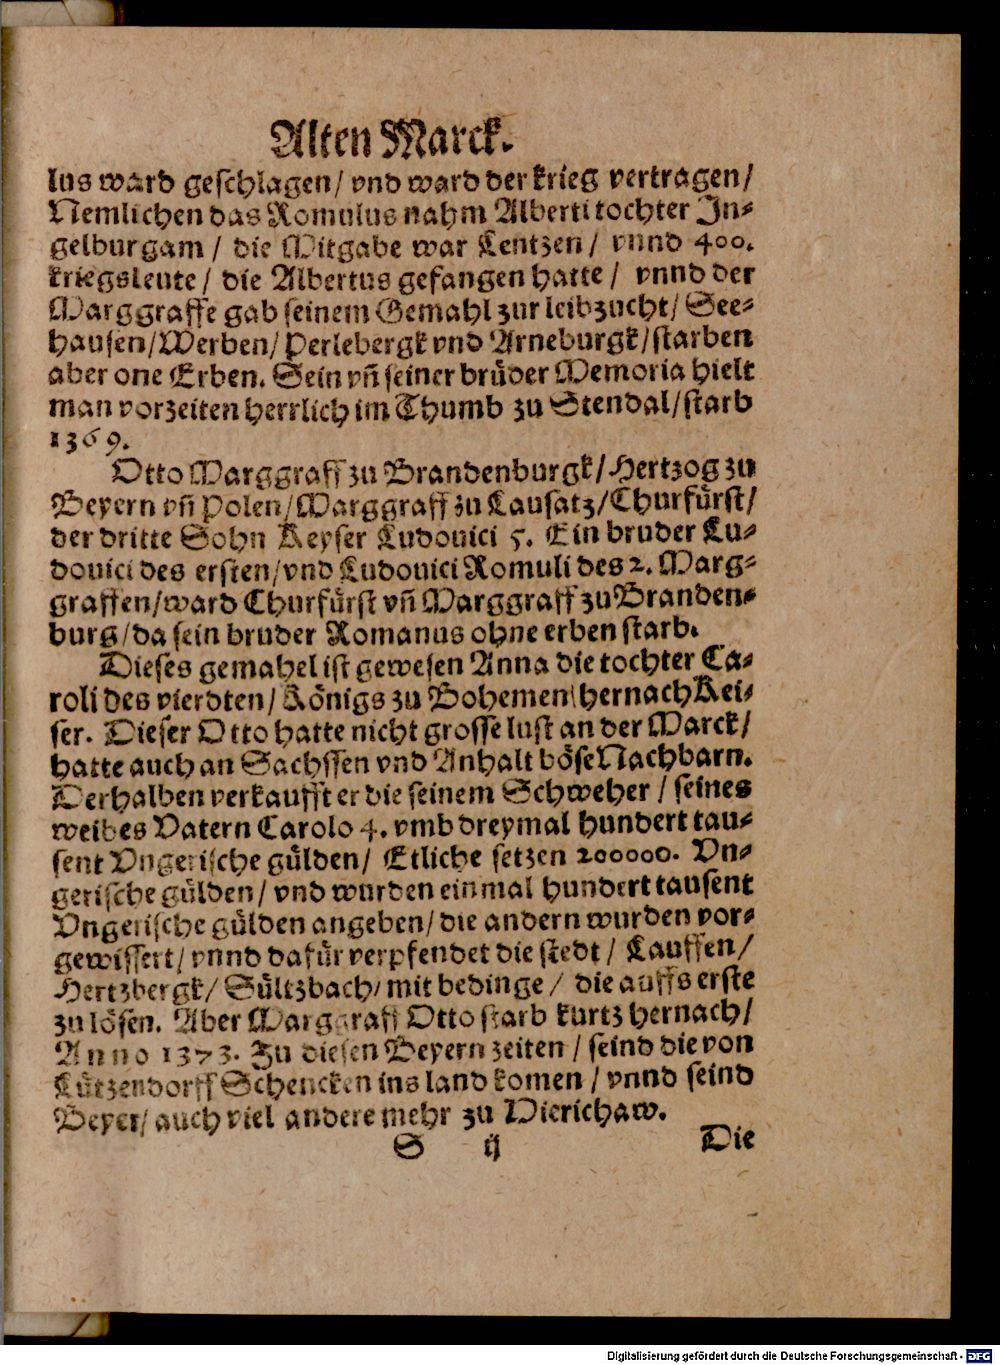 Alten Marck.
lus ward geschlagen/ vnd ward der krieg vertragen/
Nemlichen das Romulus nahm Alberti tochter In⸗
gelburgam / die Mitgabe war Lentzen / vnnd 400.
kriegsleute / die Albertus gefangen hatte / vnnd der
Marggraffe gab seinem Gemahl zur leibzucht/ See⸗
hausen/Werben/ Perlebergk vnd Arneburgk/starben
aber one Erben. Sein vñ seiner brůder Memoria hielt
man vorzeiten herrlich im Thumb zu Stendal/starb
1369.
Otto Marggraff zu Brandenburgk/Hertzog zu
Beyern vñ Polen/Marggraff zu Lausatz/Churfůrst/
der dritte Sohn Keyser Ludouici 5. Ein bruder Lu⸗
douici des ersten/vnd Ludouici Romuli des 2. Marg⸗
graffen/ward Churfůrst vñ Marggraff zu Branden⸗
burg/da sein bruder Romanus ohne erben starb.
Dieses gemahel ist gewesen Anna die tochter Ca⸗
roli des vierdten/ Königs zu Bohemen/hernach Kei⸗
ser. Dieser Otto hatte nicht grosse lust an der Marck/
hatte auch an Sachssen vnd Anhalt böse Nachbarn.
Derhalben verkaufft er die seinem Schweher / seines
weibes Vatern Carolo 4. vmb dreymal hundert tau⸗
sent Vngerische gůlden/ Etliche setzen 200000. Vn⸗
gerische gůlden/ vnd wurden einmal hundert tausent
Vngerische gůlden angeben/ die andern wurden vor⸗
gewissert/ vnnd dafůr verpfendet die stedt / Lauffen/
Hertzbergk/ Sůltzbach/ mit bedinge / die auffs erste
zu lösen. Aber Marggraff Otto starb kurtz hernach/
Anno 1373. Zu diesen Beyern zeiten / seind die von
Lůtzendorff Schencken ins land komen / vnnd seind
Beyer/ auch viel andere mehr zu Vierichaw.
S ij Die
Digitalisierung gefördert durch die Deutsche Forschungsgemeinschaft - DFG